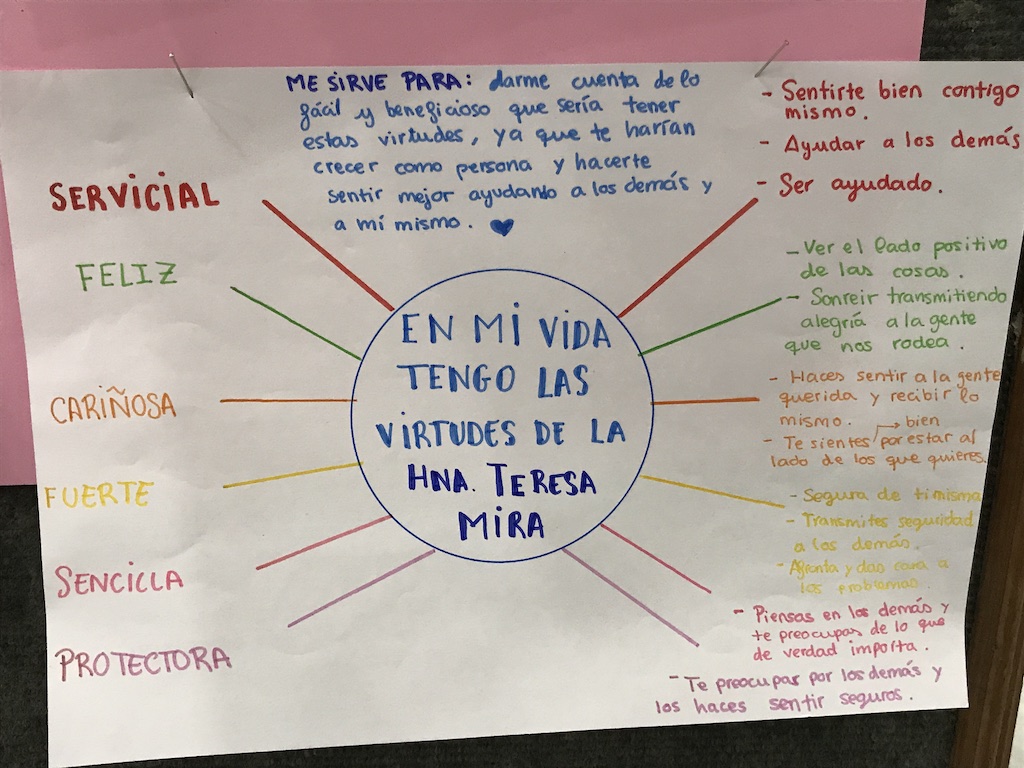 ME SIRVE PARA: darme cuenta de lo
fácil y beneficioso que sería tener
estas virtudes, ya que te harían
crecer como persona y hacerte
sentir mejor ayudando a los demás y
a mí mismo.
SERVICIAL
FELIZ
CARIÑOSA
FUERTE
SENCILLA
PROTECTORA
EN MI VIDA
TENGO LAS
VIRTUDES DE LA
HNA. TERESA
MIRA
- Sentirte bien contigo
mismo.
- Ayudar a los demás
- Ser ayudado.
- Ver el lado positivo
de las cosas.
- Sonreir transmitiendo
alegría a la gente
que nos rodea.
- Haces sentir a la gente
querida y recibir lo
mismo.
bien
- Te sientes por estar al
lado de los que quieres.
- Segura de ti misma
- Transmites seguridad
a los demás.
- Afronta y das cara a
los problemas.
- Piensas en los demás y
te preocupas de lo que
de verdad importa.
- Te preocupas por los demás y
los haces sentir seguros.